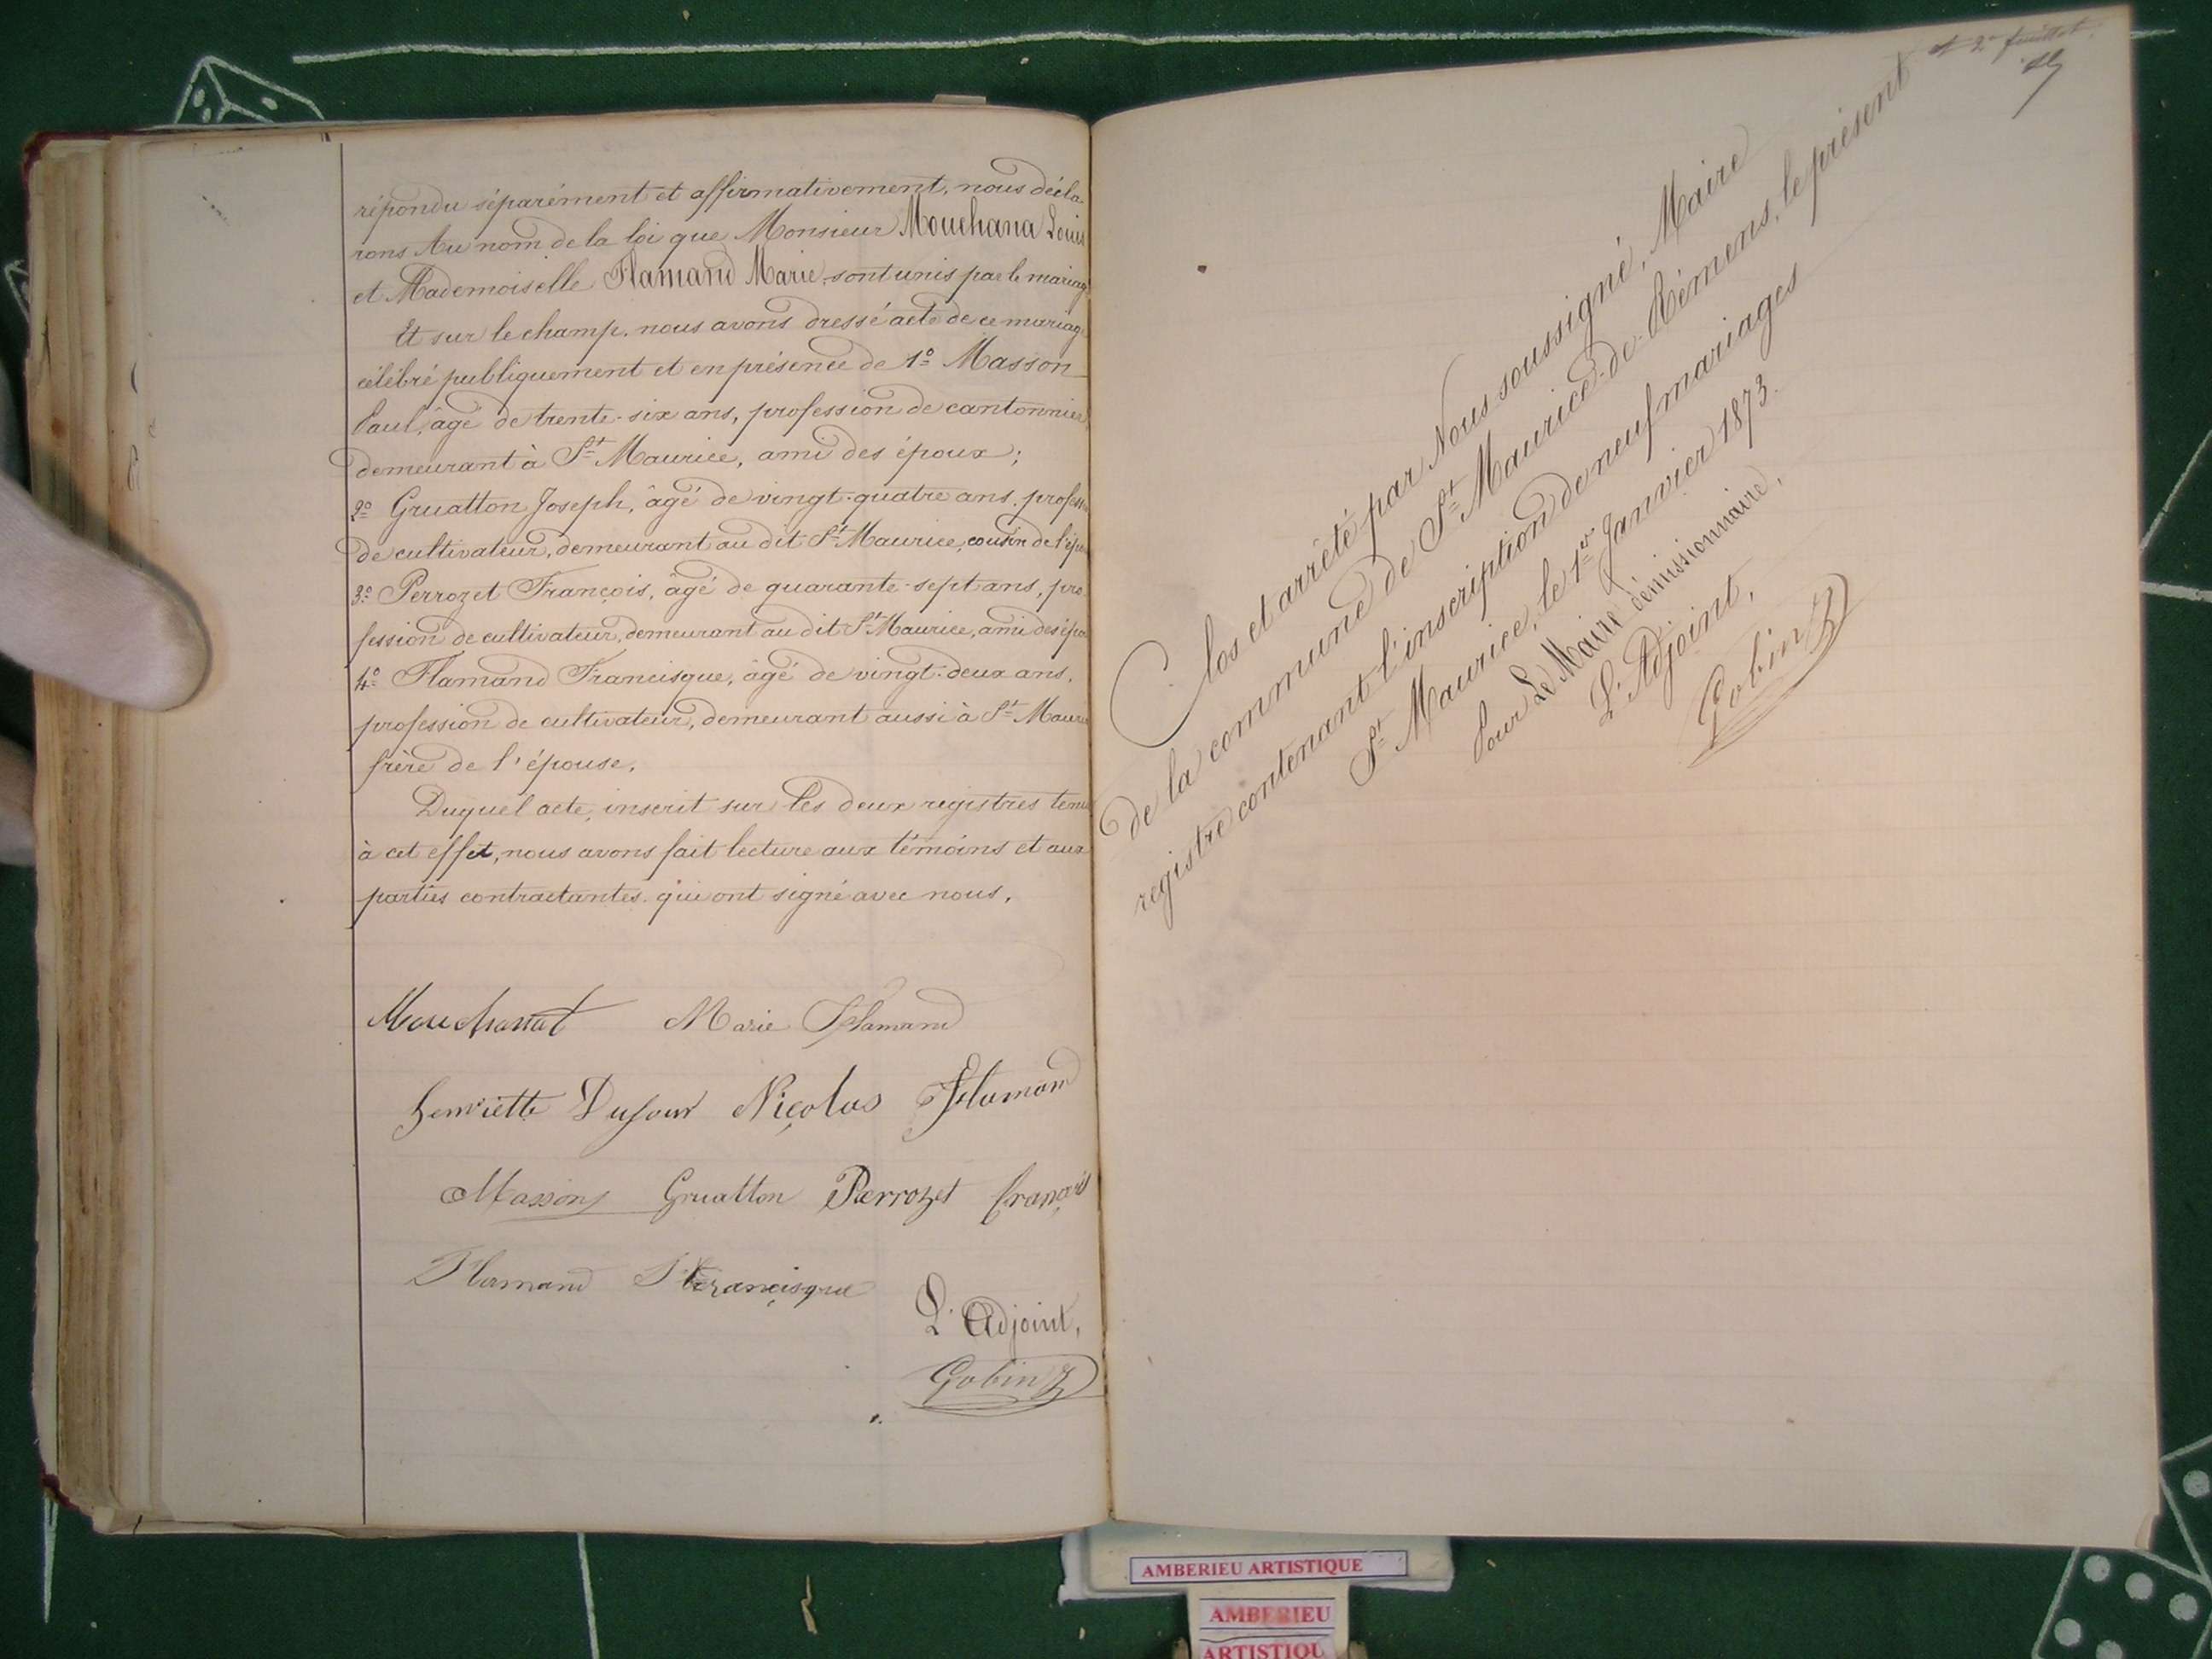 répondu séparément et affirmativement, nous décla-
rons Au nom de la loi que Monsieur Mouchana Louis
et Mademoiselle Flamand Marie, sont unis par le mariag
Et sur le champ, nous avons dressé acte de ce mariag
célébré publiquement et en présence de 1º Masson
Paul, âgé de trente-six ans, profession de cantonnier
demeurant à St Maurice, ami des époux;
2º Gruatton Joseph, âgé de vingt-quatre ans, profess
de cultivateur, demeurant au dit St Maurice, cousin de l'ép
3º Perrozet François, âgé de quarante-sept ans, pro
fession de cultivateur, demeurant au dit St Maurice, ami des épo
4º Flamand Francisque, âgé de vingt-deux ans,
profession de cultivateur, demeurant aussi à St Mauri
frère de l'épouse.
Duquel acte, inscrit sur les deux registres tenu
à cet effet, nous avons fait lecture aux témoins et aux
parties contractantes qui ont signé avec nous.
Mouchanat Marie Flamand
henriette Dufour Nicolas Flamand
Masson Gruatton Perrozet françois
Flamand Francisque
L'Adjoint,
Gobin
et 2e feuillet.
Clos et arrêté par Nous soussigné, Maire
de la commune de St Maurice-de-Rémens, le présent
registre contenant l'inscription de neuf mariages
St Maurice, le 1er Janvier 1873.
Pour Le Maire démissionnaire,
L'Adjoint,
Gobin
AMBERIEU ARTISTIQUE
AMBERIEU
ARTISTIQU